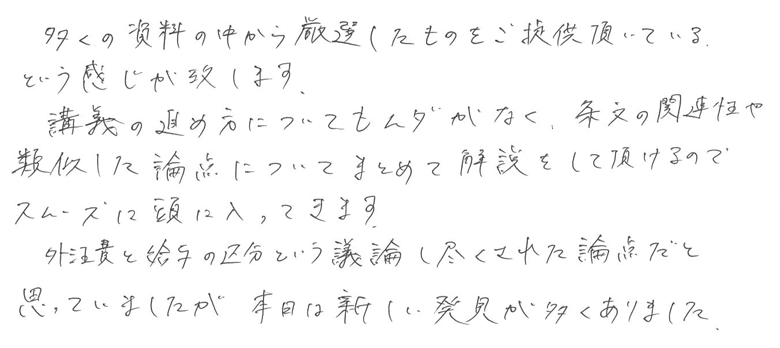 多くの資料の中から厳選したものをご提供頂いている、
という感じが致します。
講義の進め方についてもムダがなく、条文の関連性や
類似した論点についてまとめて解説をして頂けるので
スムーズに頭に入ってきます。
外注費と給与の区分という議論し尽くされた論点だと
思っていましたが 本日は新しい発見が多くありました。